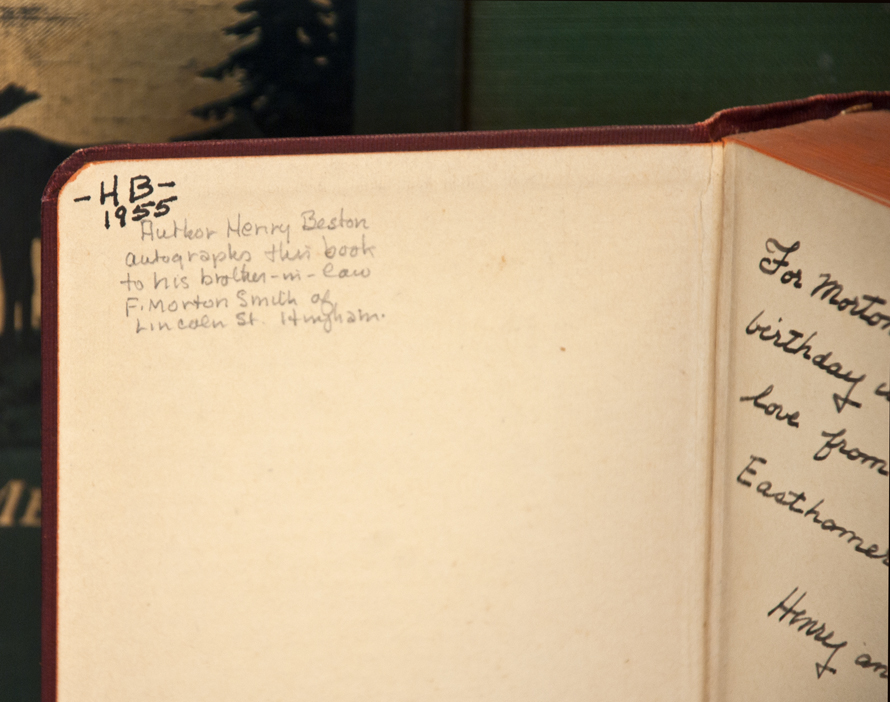 -HB-
1955
Author Henry Beston
autographs this book
to his brother-in-law
F. Morton Smith of
Lincoln St. Hingham.
For Morton
birthday
love from
Easthome
Henry an